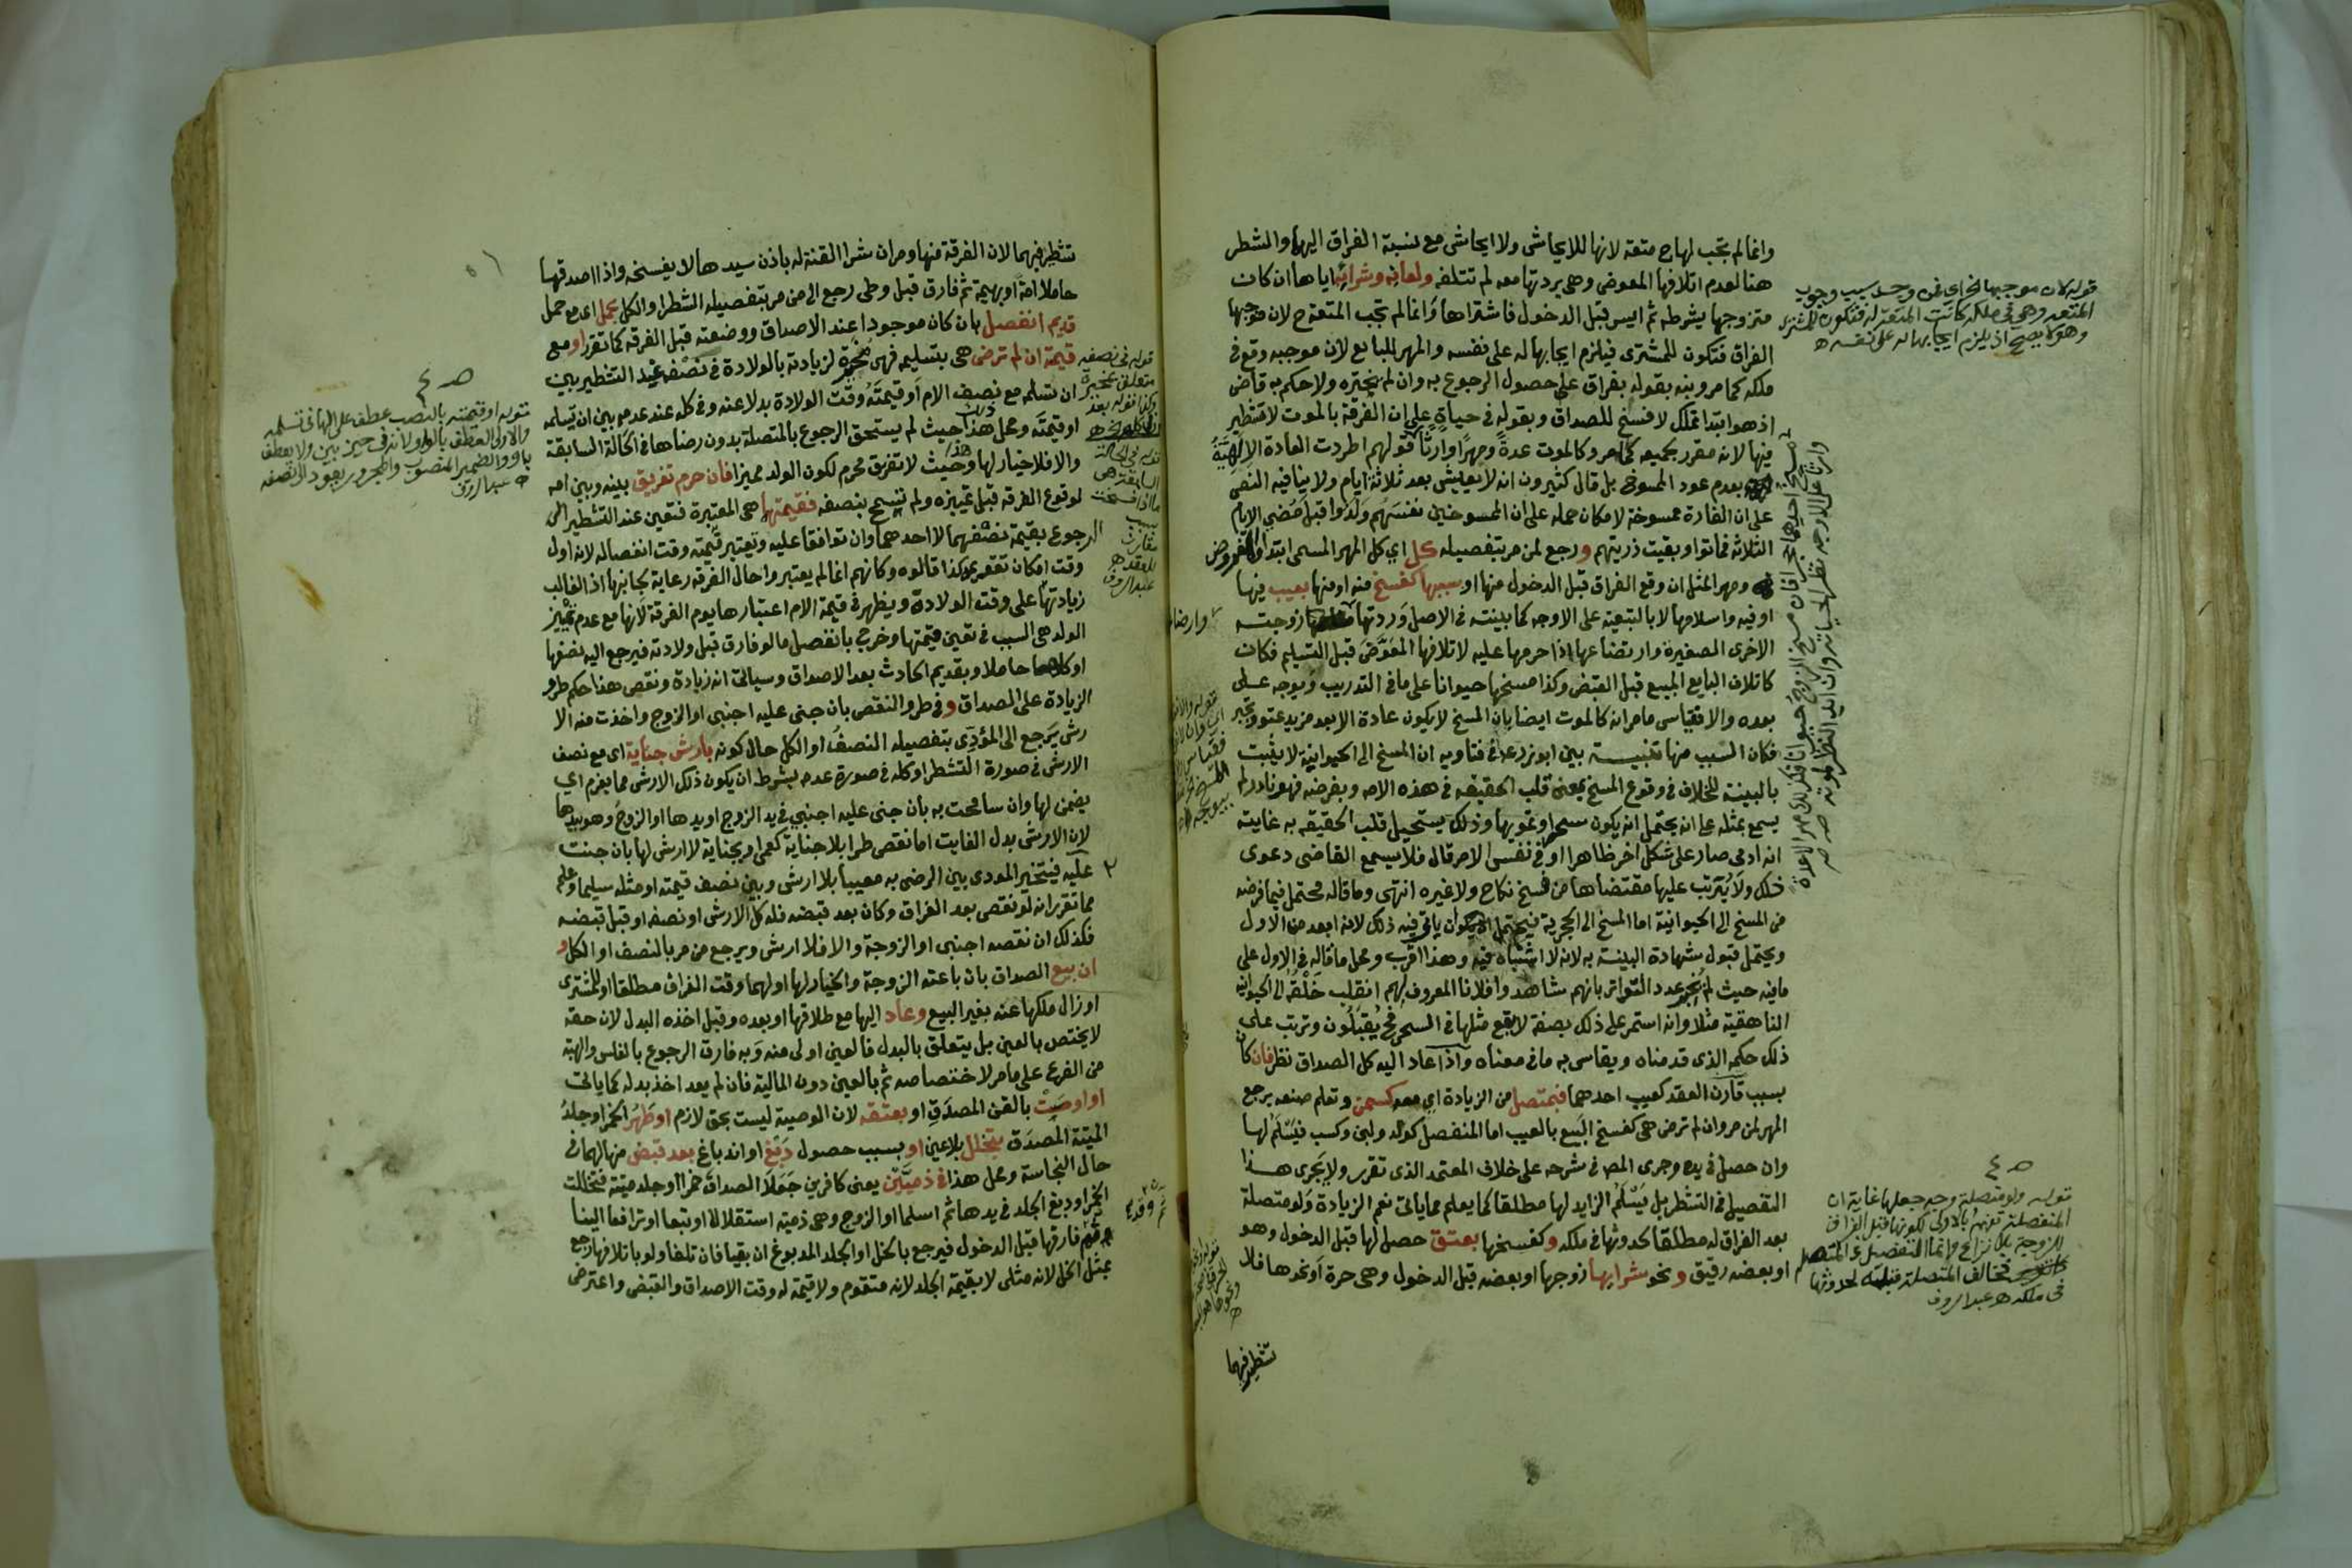 وانما لم تجب لها ح متعة لانها للايحاش ولا ايحاش مع نسبة الفراق اليها والمشطر
هنا لعدم اتلافها المعوض وهي بردتها معه لم تتلفه ولعانه وشرائه اياها ان كان
متزوجها بشرطه ثم ايس قبل الدخول فاشتراها وانما لم تجب المتعة ح لان موجبها
الفراق فتكون للمشتري فيلزم ايجابها له على نفسه والمهر للبايع لان موجبه وقع في
ملكه كما مر وبنه بقوله بفراق على حصول الرجوع به وان لم يختره ولا حكم به قاض
اذ هو ابتدا تملك لا فسخ للصداق وبقوله في حياة على ان الفرقة بالموت لا تشطير
فيها لانه مقرر بجميعه كما مر وكالموت عدة ومهرا وارثا قولهم اطردت العادة الالهية
بعدم عود الممسوخ بل قال كثيرون انه لا يعيش بعد ثلاثة ايام ولا ينافيه النص
على ان الفارة ممسوخة لامكان حمله على ان الممسوخين نفسهم ولدوا قبل مضي الايام
الثلاثة فماتوا وبقيت ذريتهم ورجع لمن مر بتفصيله كل اي كل المهر المسمى ابتدا والمفروض
ومهر المثل ان وقع الفراق قبل الدخول منها او بسببها كفسخ منه او منها بعيب فيها
او فيه واسلامها لا بالتبعية على الاوجه كما بينته في الاصل وردتها زوجته
الاخرى الصغيرة وارتضاعها اذا حرمها عليه لاتلافها المعوض قبل التسليم فكان
كاتلاف البايع المبيع قبل القبض وكذا مسخها حيوانا على ما في التدريب ويوجه على
بعده والا فقياس ما مر انه كالموت ايضا بان المسخ لا يكون عادة الا بعد مزيد عتو وتجبر
فكان السبب منها تنبيه بين ابو زرعة في فتاويه ان المسخ الى الحيوانية لا يثبت
بالبينة للخلاف في وقوع المسخ بمعنى قلب الحقيقة في هذه الامة وبفرضه فهو نادر لم
يسمع بمثله على انه يحتمل انه يكون سحرا وتمويها وذلك يستحيل قلب الحقيقة به غايته
انه ادمي صار على شكل اخر ظاهرا او في نفس الامر قال فلا يسمع القاضي دعوى
ذلك ولا يرتب عليها مقتضاها من فسخ نكاح ولا غيره انتهى وما قاله محتمل فيما فرضه
من المسخ الى الحيوانية اما المسخ الى الحجرية فيحتمل ان يأتي فيه ذلك لانه ابعد من الاول
ويحتمل قبول شهادة البينة به لانه لا اشتباه فيه وهذا اقرب ومحل ما قاله في الاول على
ما فيه حيث لم يخبر عدد التواتر بانهم شاهدوا فلانا المعروف لهم انقلب خلقه الى الحيوانية
الناهقية مثلا وانه استمر على ذلك بصفة لا يقع مثلها في السحر فح يقبلون وترتب على
ذلك حكمه الذي قدمناه ويقاس به ما في معناه واذا عاد اليه كل الصداق نظر فان كان
بسبب قارن العقد كعيب احدهما فبمتصل من الزيادة اي معه كسمن وتعلم صنعة يرجع
المهر لمن مر وان لم ترض هي كفسخ البيع بالعيب اما المنفصل كولد ولبن وكسب فيسلم لها
وان حصل في يده وجرى المص في شرحه على خلاف المعتمد الذي تقرر ولا يجري هذا
التفصيل في التشطر بل يسلم الزايد لها مطلقا كما يعلم مما ياتي نعم الزيادة ولو متصلة
بعد الفراق له مطلقا كحدوثها في ملكه وكفسخها بعتق حصل لها قبل الدخول وهو
او بعضه رقيق ونحو شرايها زوجها او بعضه قبل الدخول وهي حرة او نحوها فلا
تشطير فيهما
قوله لان موجبها الخ اي فمن وجد سبب وجوب
المتعة وهي في ملكه كانت المتعة له فتكون للمشتري
وهو لا يصح اذ يلزم ايجابها له على نفسه ه
قوله ولو متصلة وجه جعلها غاية ان
المنفصلة تفهم بالاولى لكونها قبل الفراق
للزوجة بلا نزاع وانما التفصيل في المتصلة
فخالف المتصلة قبله لحدوثها
في ملكه ه عبد الروف
تشطير فيهما لان الفرقة منها ومر ان شرا القنة له باذن سيدها لا يفسخه واذا اصدقها
حاملا امة او بهيمة ثم فارق قبل وطي رجع الى من مر بتفصيله الشطر او الكل بحمل اي مع حمل
قديم انفصل بان كان موجودا عند الاصداق ووضعته قبل الفرقة كما تقرر او مع
قيمة ان لم ترض هي بتسليمه فهي مخيرة لزيادته بالولادة في نصفه عند التشطير بين
ان تسلمه مع نصف الام او قيمته وقت الولادة بدلا عنه وفي كله عند عدمه بين ان تسلمه
او قيمته ومحل هذا حيث لم يستحق الرجوع بالمتصلة بدون رضاها في الحالة السابقة
والا فلا خيار لها وحيث لا تفريق محرم لكون الولد مميزا فان حرم تفريق بينه وبين امه
لوقوع الفرقة قبل تمييزه ولم تسمح بنصفه فقيمتهما هي المعتبرة فتعين عند التشطير
الرجوع بقيمة نصفهما لا احدهما وان توافقا عليه وتعتبر قيمته وقت انفصاله لانه اول
وقت امكان تقويمه كذا قالوه وكانهم انما لم يعتبروا حال الفرقة رعاية لجانبها اذ الغالب
زيادتها على وقت الولادة ويظهر في قيمة الام اعتبارها يوم الفرقة لانها مع عدم تمييز
الولد هي السبب في تعين قيمتها وخرج بانفصل ما لو فارق قبل ولادته فيرجع اليه نصفها
او كلها حاملا وبقديم الحادث بعد الاصداق وسياتي انه زيادة ونقص هذا حكم طرو
الزيادة على الصداق وفي طرو النقص بان جنى عليه اجنبي او الزوج واخذت منه الا
رش يرجع الى المؤدي بتفصيله النصف او الكل حال كونه بارش جناية اي مع نصف
الارش في صورة التشطر او كله في صورة عدمه بشرط ان يكون ذلك الارش مما يغرم اي
يضمن لها وان سامحت به بان جنى عليه اجنبي في يد الزوج او يدها او الزوج وهو بيدها
لان الارش بدل الفايت اما نقص طرا بلا جناية كعمى او بجناية لا ارش لها بان جنت
عليه فيتخير المودي بين الرضى به معيبا بلا ارش وبين نصف قيمته او مثله سليما وعلم
مما تقرر انه لو نقص بعد الفراق وكان بعد قبضه فله كل الارش او نصفه او قبل قبضه
فكذلك ان نقصه اجنبي او الزوجة والا فلا ارش ويرجع من مر بالنصف او الكل و
ان بيع الصداق بان باعته الزوجة والخيار لها او لهما وقت الفراق مطلقا او للمشتري
او زال ملكها عنه بغير البيع وعاد اليها مع طلاقها او بعده وقبل اخذه البدل لان حقه
لا يختص بالعين بل يتعلق بالبدل فالعين اولى منه وبه فارق الرجوع بالفلس والهبة
من الفرع على ما مر لاختصاصه ثم بالعين دون المالية فان لم يعد اخذ بدله كما ياتي
او اوصيت بالقن المصدق او بعتقه لان الوصية ليست بحق لازم او طهر الخمر او جلد
الميتة المصدق بتخلل بلا عين او بسبب حصول دبغ او اندباغ بعد قبض منها لهما في
حال النجاسة ومحل هذا في ذميين يعني كافرين جعلا الصداق خمرا او جلد ميتة فتخللت
الخمر او دبغ الجلد في يدها ثم اسلما او الزوج وهي ذمية استقلالا او تبعا او ترافعا الينا
ثم فارقها قبل الدخول فيرجع بالخل او الجلد المدبوغ ان بقيا فان تلفا ولو باتلافها رجع
بمثل الخل لانه مثلي لا بقيمة الجلد لانه متقوم ولا قيمة له وقت الاصداق والقبض واعترض
قوله او قيمته بالنصب عطف على الها في تسلمه
والاولى العطف بالواو لانه في حيز بين ولا يعطف
باو والضمير المنصوب والمجرور يعود الى نصفه
ه عبد الروف